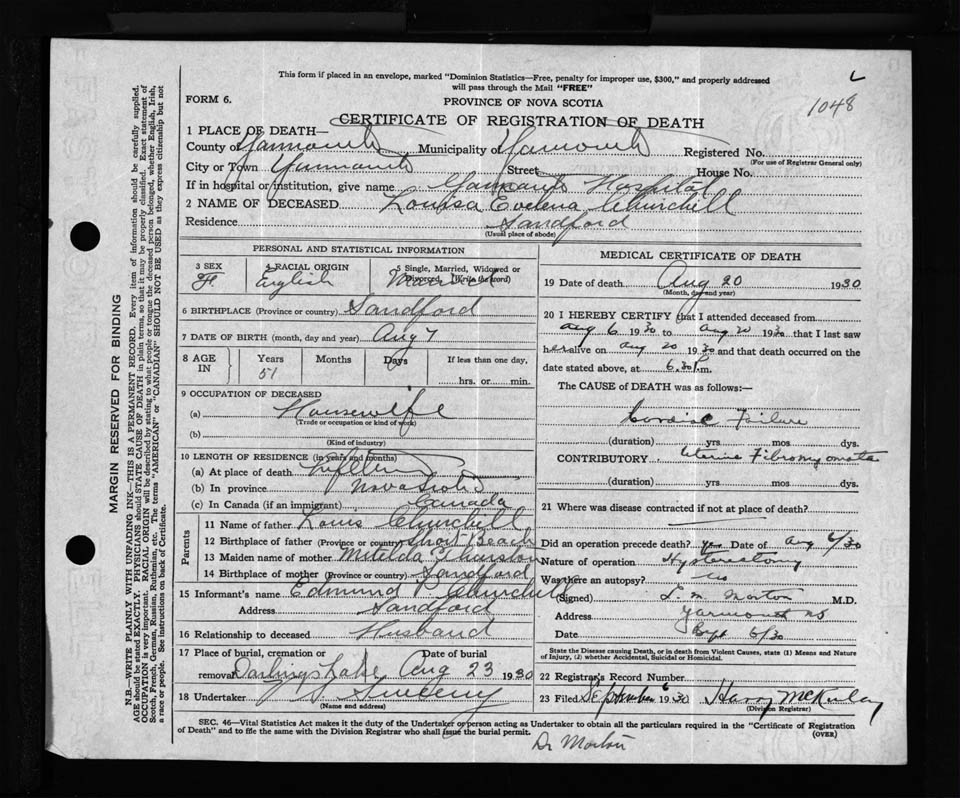 This form if placed in an envelope, marked "Dominion Statistics—Free, penalty for improper use, $300," and properly addressed
will pass through the Mail "FREE"
FORM 6.
PROVINCE OF NOVA SCOTIA
1048
CERTIFICATE OF REGISTRATION OF DEATH
1 PLACE OF DEATH—
County of Yarmouth, Municipality of Yarmouth Registered No.
(For use of Registrar General only)
City or Town Yarmouth Street House No.
If in hospital or institution, give name Yarmouth Hospital
2 NAME OF DECEASED Louisa Evelena Churchill
Residence Sandford
(Usual place of abode)
PERSONAL AND STATISTICAL INFORMATION
3 SEX 4 RACIAL ORIGIN 5 Single, Married, Widowed or
Divorced, (Write the word)
F English Married
6 BIRTHPLACE (Province or country) Sandford
7 DATE OF BIRTH (month, day and year) Aug 7
8 AGE IN Years Months Days If less than one day,
51 hrs. or min.
9 OCCUPATION OF DECEASED
(a) Housewife
(Trade or occupation or kind of work)
(b)
(Kind of industry)
10 LENGTH OF RESIDENCE (in years and months)
(a) At place of death Lifetime
(b) In province Nova Scotia
(c) In Canada (if an immigrant) Canada
Parents
11 Name of father Louis Churchill
12 Birthplace of father (Province or country) Short Beach
13 Maiden name of mother Mitelda Thurston
14 Birthplace of mother (Province or country) Sandford
15 Informant's name Edmund P. Churchill
Address Sandford
16 Relationship to deceased Husband
17 Place of burial, cremation or Date of burial
removal Darlings Lake Aug 23 1930
18 Undertaker Sweeny
(Name and address)
MEDICAL CERTIFICATE OF DEATH
19 Date of death Aug 20 1930
(Month, day and year)
20 I HEREBY CERTIFY that I attended deceased from
Aug 6 1930 to Aug 20 1930 that I last saw
her alive on Aug 20 1930 and that death occurred on the
date stated above, at 6.30 P.m.
The CAUSE of DEATH was as follows:—
Cardiac Failure
(duration) yrs mos dys.
CONTRIBUTORY Uterine Fibromyomata
(duration) yrs. mos. dys.
21 Where was disease contracted if not at place of death?
Did an operation precede death? yes Date of Aug 6/30
Nature of operation Hysterectomy
Was there an autopsy? no
(Signed) L. M. Morton M.D.
Address Yarmouth NS
Date Sept 6/30
State the Disease causing Death, or in death from Violent Causes, state (1) Means and Nature
of Injury, (2) whether Accidental, Suicidal or Homicidal.
22 Registrar's Record Number
23 Filed September 6 1930 Harry McKinlay
(Division Registrar)
SEC. 46—Vital Statistics Act makes it the duty of the Undertaker or person acting as Undertaker to obtain all the particulars required in the "Certificate of Registration
of Death" and to file the same with the Division Registrar who shall issue the burial permit.
(OVER)
Dr Morton
MARGIN RESERVED FOR BINDING
N.B.—WRITE PLAINLY WITH UNFADING INK—THIS IS A PERMANENT RECORD. Every item of information should be carefully supplied.
AGE should be stated EXACTLY. PHYSICIANS should STATE CAUSE OF DEATH in plain terms, so that it may be properly classified. Exact statement of
OCCUPATION is very important. RACIAL ORIGIN will be described by stating to what people or tongue the deceased person belonged, whether English, Irish,
Scotch, French, German, Russian, Ruthenian, etc. The terms "AMERICAN" or "CANADIAN" SHOULD NOT BE USED as they express citizenship but not
a race or people. See instructions on back of Certificate.